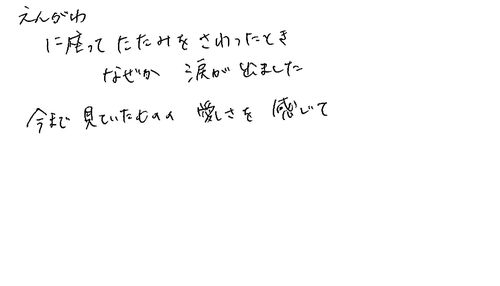 えんがわ
に座って たたみを さわったとき
なぜか 涙が 出ました
今まで 見ていたものの 愛しさを 感じて